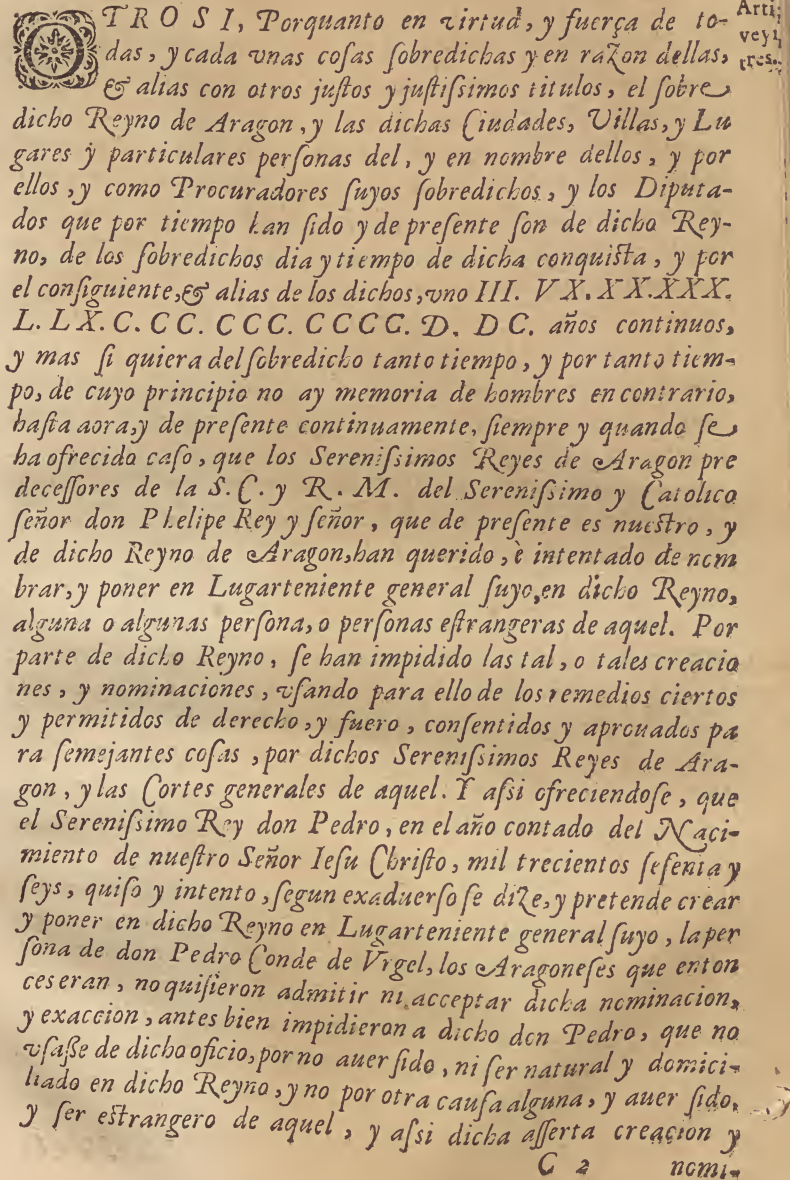 OTROSI, Porquanto en virtud, y fuerça de to-
das, y cada vnas cosas sobredichas y en razon dellas,
& alias con otros justos y justissimos titulos, el sobre
dicho Reyno de Aragon, y las dichas Ciudades, Villas, y Lu
gares y particulares personas del, y en nombre dellos, y por
ellos, y como Procuradores suyos sobredichos, y los Diputa-
dos que por tiempo han sido y de presente son de dicho Rey-
no, de los sobredichos dia y tiempo de dicha conquista, y por
el consiguiente, & alias de los dichos, vno III. VX. XX.XXX.
L. LX. C. CC. CCC. CCCC. D. DC. años continuos,
y mas si quiera del sobredicho tanto tiempo, y por tanto tiem-
po, de cuyo principio no ay memoria de hombres en contrario,
hasta aora, y de presente continuamente, siempre y quando se
ha ofrecido caso, que los Serenissimos Reyes de Aragon pre
decessores de la S. C. y R. M. del Serenissimo y Catolico
señor don Phelipe Rey y señor, que de presente es nuestro, y
de dicho Reyno de Aragon, han querido, è intentado de nom
brar, y poner en Lugarteniente general suyo, en dicho Reyno,
alguna o algunas persona, o personas estrangeras de aquel. Por
parte de dicho Reyno, se han impidido las tal, o tales creacio
nes, y nominaciones, vsando para ello de los remedios ciertos
y permitidos de derecho, y fuero, consentidos y aprouados pa
ra semejantes cosas, por dichos Serenissimos Reyes de Ara-
gon, y las Cortes generales de aquel. Y assi ofreciendose, que
el Serenissimo Rey don Pedro, en el año contado del Naci-
miento de nuestro Señor Iesu Christo, mil trecientos sesenta y
seys, quiso y intento, segun exaduerso se dize, y pretende crear
y poner en dicho Reyno en Lugarteniente general suyo, la per
sona de don Pedro Conde de Vrgel, los Aragoneses que enton
ces eran, no quisieron admitir ni acceptar dicha nominacion,
y exaccion, antes bien impidieron a dicho don Pedro, que no
vsasse de dicho oficio, por no auer sido, ni ser natural y domici-
liado en dicho Reyno, y no por otra causa alguna, y auer sido,
y ser estrangero de aquel, y assi dicha asserta creacion y
C 2 nomi-
Arti,
veyi,
tres.